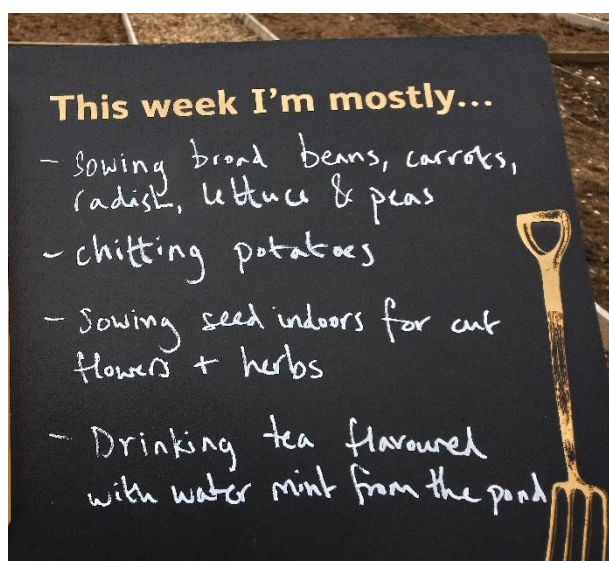 This week I'm mostly...
- Sowing broad beans, carrots,
radish, lettuce & peas
- chitting potatoes
- Sowing seed indoors for cut
flowers + herbs
- Drinking tea flavoured
with water mint from the pond